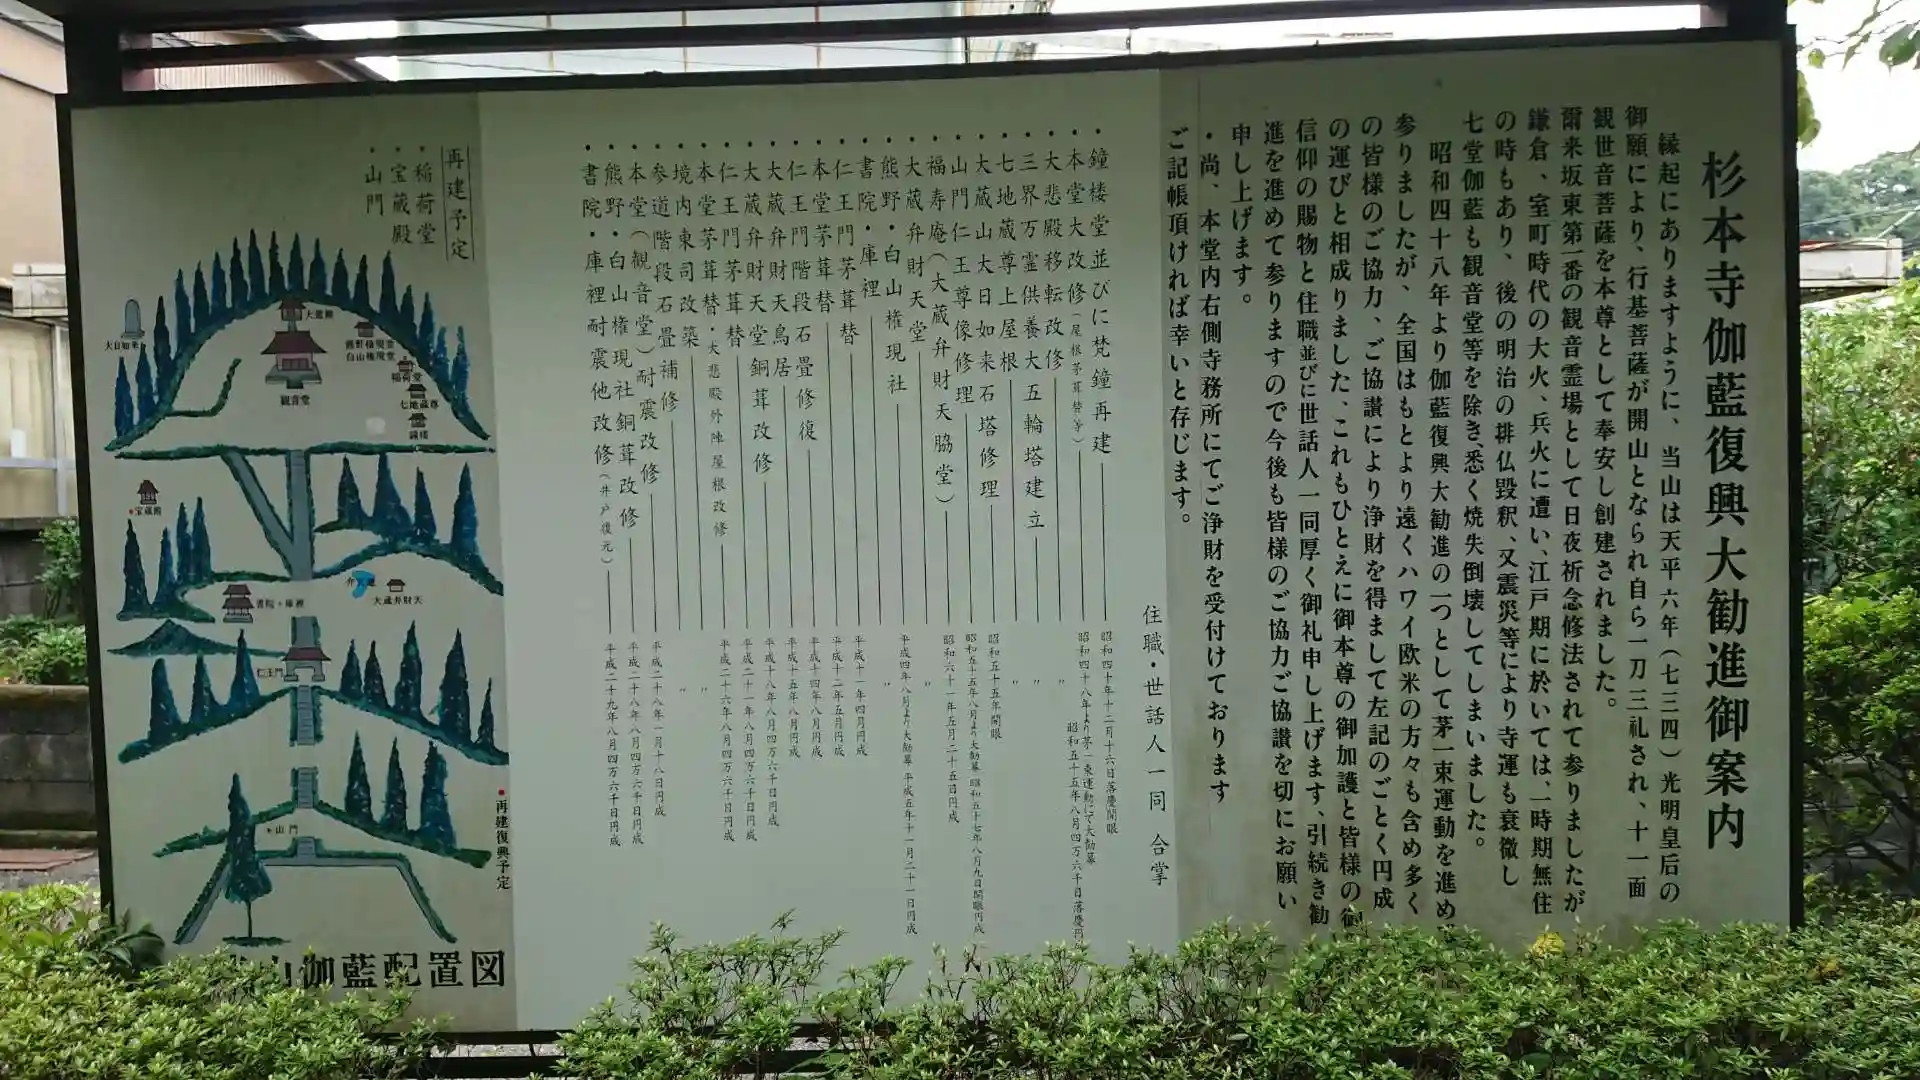 杉本寺伽藍復興大勧進御案内
縁起にありますように、当山は天平六年（七三四）光明皇后の
御願により、行基菩薩が開山となられ自ら一刀三礼され、十一面
観世音菩薩を本尊として奉安し創建されました。
爾来坂東第一番の観音霊場として日夜祈念修法されて参りましたが
鎌倉、室町時代の大火、兵火に遭い、江戸期に於いては、一時期無住
の時もあり、後の明治の排仏毀釈、又震災等により寺運も衰微し
七堂伽藍も観音堂等を除き、悉く焼失倒壊してしまいました。
昭和四十八年より伽藍復興大勧進の一つとして茅一束運動を進め
参りましたが、全国はもとより遠くハワイ欧米の方々も含め多く
の皆様のご協力、ご協讃により浄財を得まして左記のごとく円成
の運びと相成りました、これもひとえに御本尊の御加護と皆様の御
信仰の賜物と住職並びに世話人一同厚く御礼申し上げます、引続き勧
進を進めて参りますので今後も皆様のご協力ご協讃を切にお願い
申し上げます。
・尚、本堂内右側寺務所にてご浄財を受付けております
ご記帳頂ければ幸いと存じます。
住職・世話人一同 合掌
・鐘楼堂並びに梵鐘再建 昭和四十年十二月十六日落慶開眼
・本堂大改修（屋根茅葺替等） 昭和四十八年より茅一束運動にて大勧募
昭和五十五年八月四万六千日落慶円
・大悲殿移転改修 〃
・三界万霊供養大五輪塔建立 〃
・七地蔵尊上屋根 〃
・大蔵山大日如来石塔修理 昭和五十五年開眼
・山門仁王尊像修理 昭和五十五年八月より大勧募 昭和五十七年八月九日開眼円成
・福寿庵（大蔵弁財天脇堂） 昭和六十一年五月二十五日円成
・大蔵弁財天堂 〃
・熊野・白山権現社 平成四年八月より大勧募 平成五年十一月二十一日円成
・書院・庫裡 〃
・仁王門茅葺替 平成十一年四月円成
・本堂茅葺替 平成十二年五月円成
・仁王門階段石畳修復 平成十四年八月円成
・大蔵弁財天鳥居 平成十五年八月円成
・大蔵弁財天堂銅葺改修 平成十八年八月四万六千日円成
・仁王門茅葺替 平成二十一年八月四万六千日円成
・本堂茅葺替・大悲殿外陣屋根改修 平成二十六年八月四万六千日円成
・境内東司改築 〃
・参道階段石畳補修 〃
・本堂（観音堂）耐震改修 平成二十八年一月十八日円成
・熊野・白山権現社銅葺改修 平成二十八年八月四万六千日円成
・書院・庫裡耐震他改修（井戸復元） 平成二十九年八月四万六千日円成
再建予定
・稲荷堂
・宝蔵殿
・山門
大日如来
大悲殿
熊野権現堂
白山権現堂
稲荷堂
七地蔵尊
鐘楼
観音堂
・宝蔵殿
大蔵弁財天
書院・庫裡
仁王門
・山門
・再建復興予定
山伽藍配置図